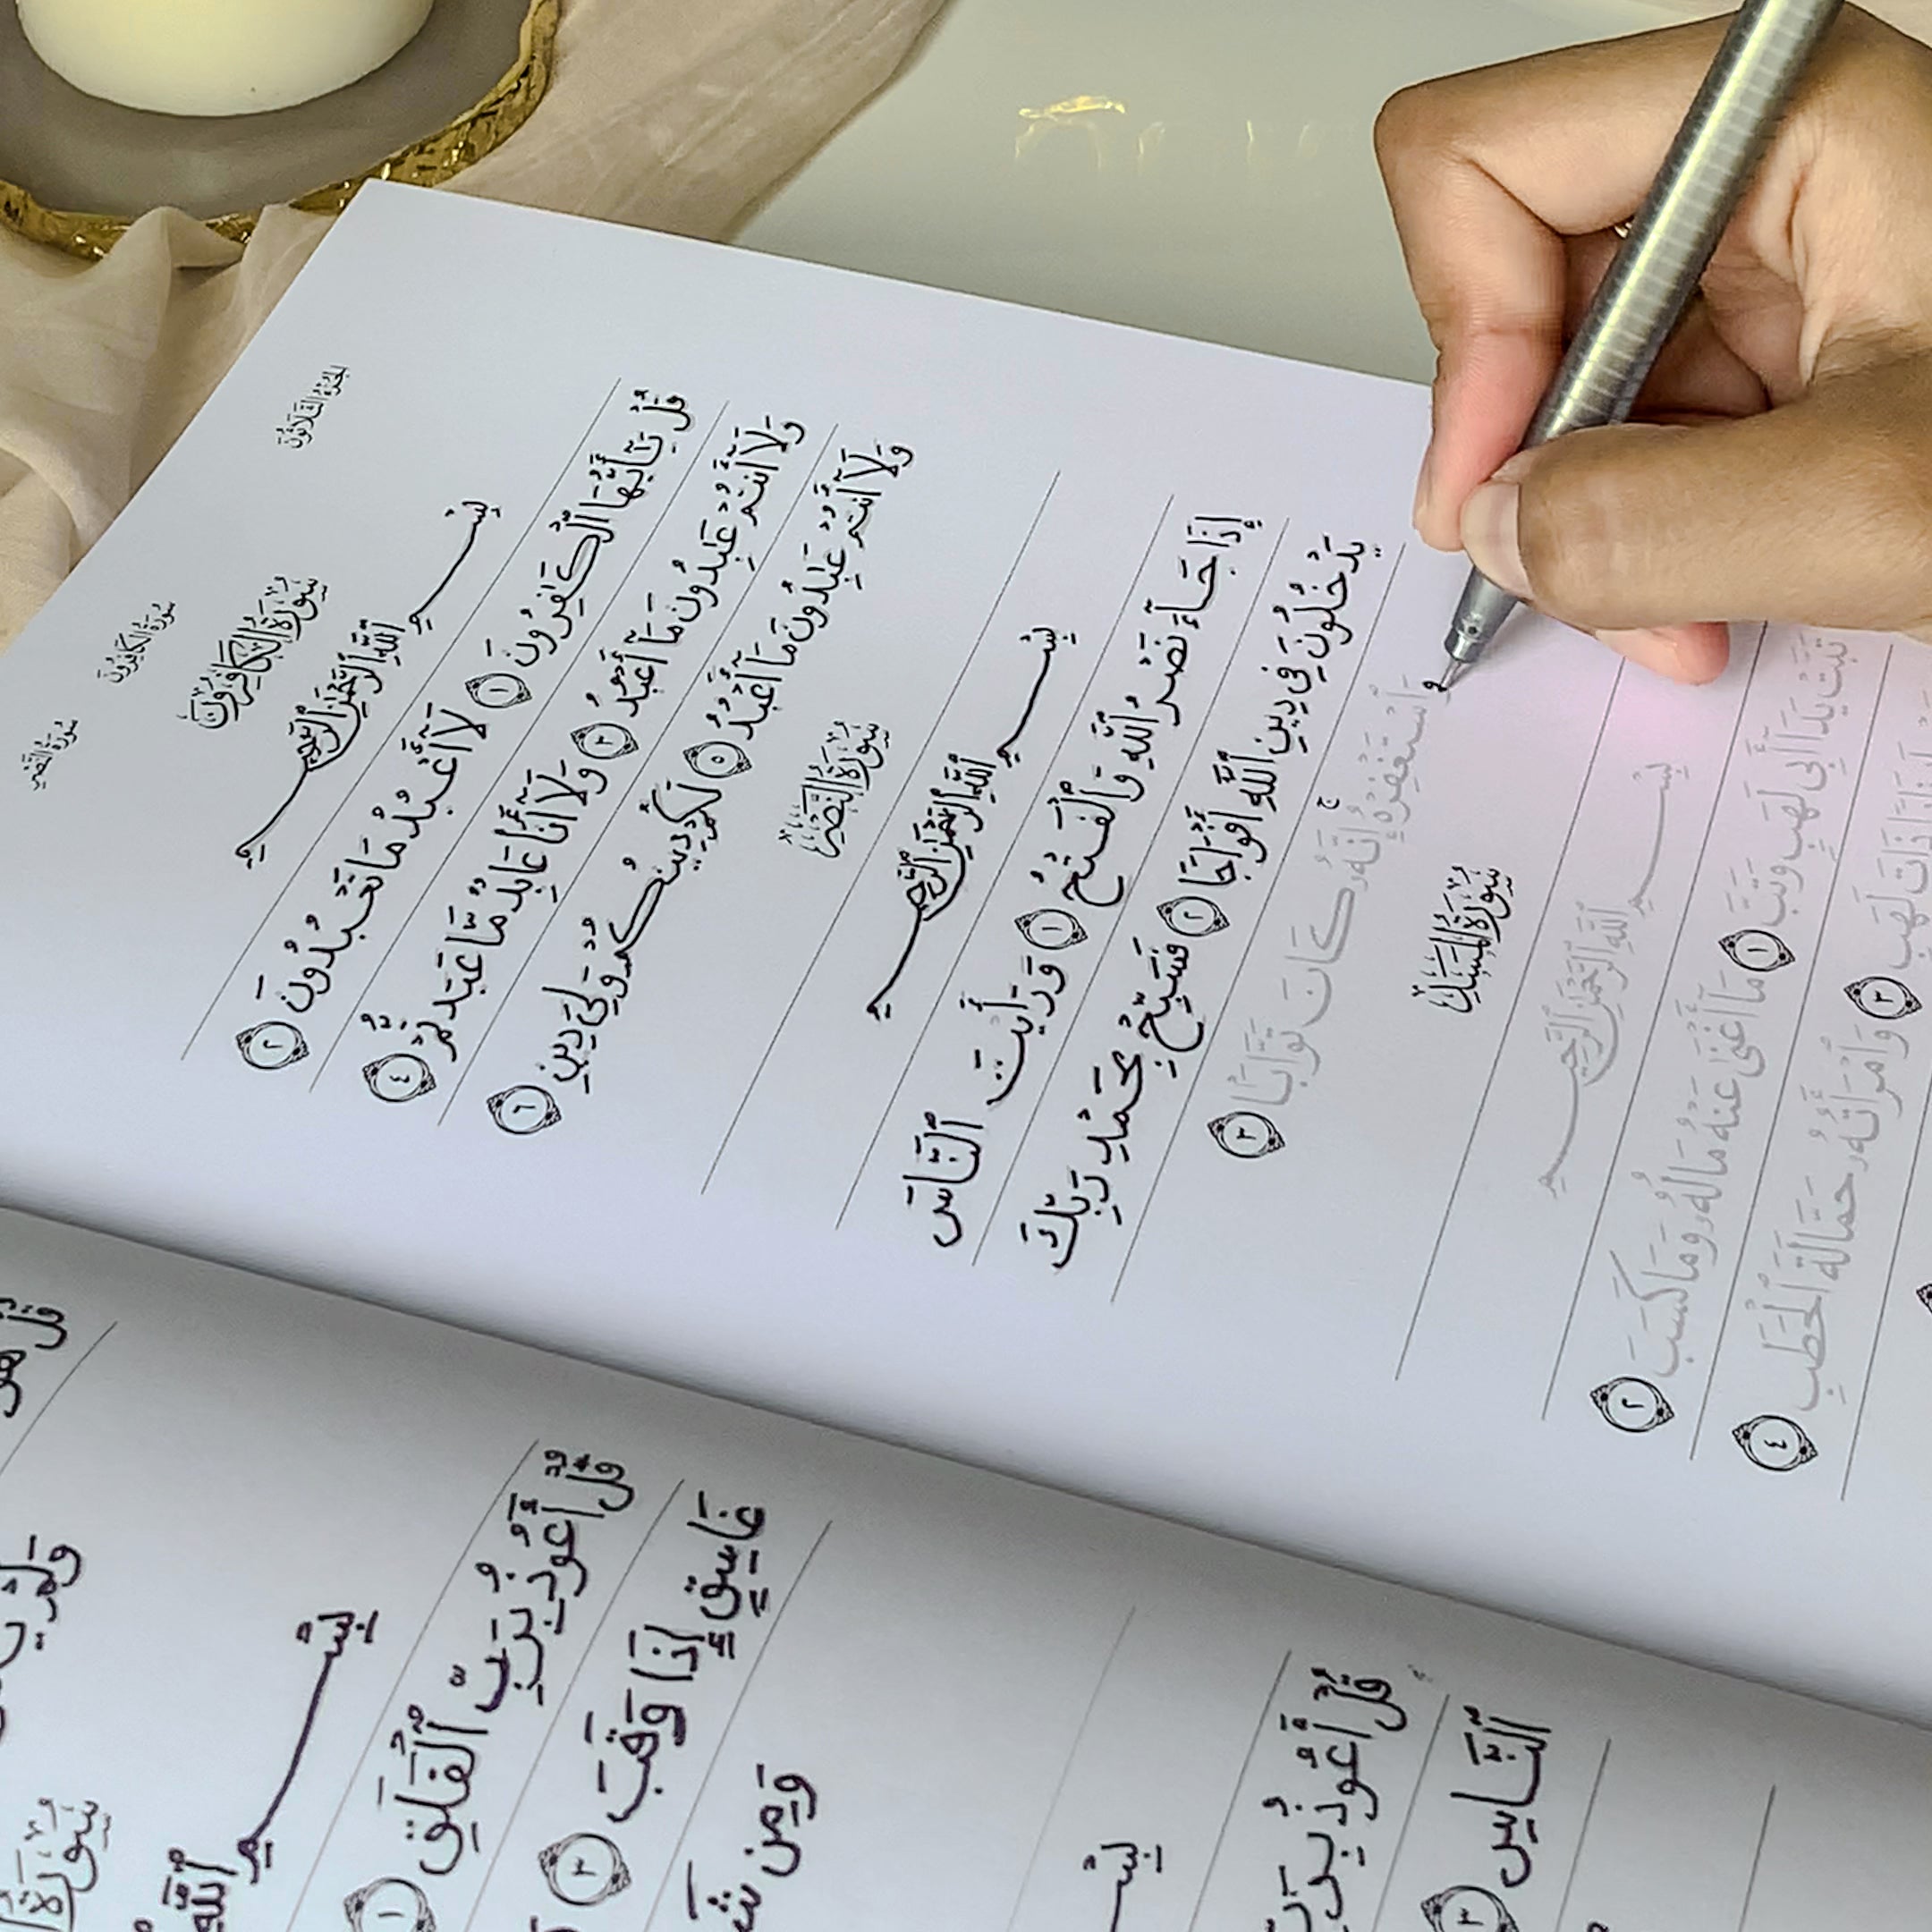 الجُزْءُ الثَّلَاثُونَ
سُورَةُ الكَافِرُونَ
سُورَةُ النَّصْرِ
سُورَةُ الكَافِرُونَ
بِسْمِ ٱللَّهِ ٱلرَّحْمَٰنِ ٱلرَّحِيمِ
قُلْ يَٰٓأَيُّهَا ٱلْكَٰفِرُونَ ١ لَآ أَعْبُدُ مَا تَعْبُدُونَ ٢
وَلَآ أَنتُمْ عَٰبِدُونَ مَآ أَعْبُدُ ٣ وَلَآ أَنَا۠ عَابِدٌ مَّا عَبَدتُّمْ ٤
وَلَآ أَنتُمْ عَٰبِدُونَ مَآ أَعْبُدُ ٥ لَكُمْ دِينُكُمْ وَلِىَ دِينِ ٦
سُورَةُ النَّصْرِ
بِسْمِ ٱللَّهِ ٱلرَّحْمَٰنِ ٱلرَّحِيمِ
إِذَا جَآءَ نَصْرُ ٱللَّهِ وَٱلْفَتْحُ ١ وَرَأَيْتَ ٱلنَّاسَ
يَدْخُلُونَ فِى دِينِ ٱللَّهِ أَفْوَاجًا ٢ فَسَبِّحْ بِحَمْدِ رَبِّكَ
وَٱسْتَغْفِرْهُ ۚ إِنَّهُۥ كَانَ تَوَّابًۢا ٣
سُورَةُ المَسَدِ
بِسْمِ ٱللَّهِ ٱلرَّحْمَٰنِ ٱلرَّحِيمِ
تَبَّتْ يَدَآ أَبِى لَهَبٍ وَتَبَّ ١ مَآ أَغْنَىٰ عَنْهُ مَالُهُۥ وَمَا كَسَبَ ٢
ذَاتَ لَهَبٍ ٣ وَٱمْرَأَتُهُۥ حَمَّالَةَ ٱلْحَطَبِ ٤
قُلْ هُوَ
سُورَةُ
بِسْمِ ٱللَّهِ
قُلْ أَعُوذُ بِرَبِّ ٱلْفَلَقِ ١
غَاسِقٍ إِذَا وَقَبَ ٣
وَمِن
بِسْمِ
قُلْ أَعُوذُ بِرَبِّ
ٱلنَّاسِ ٣